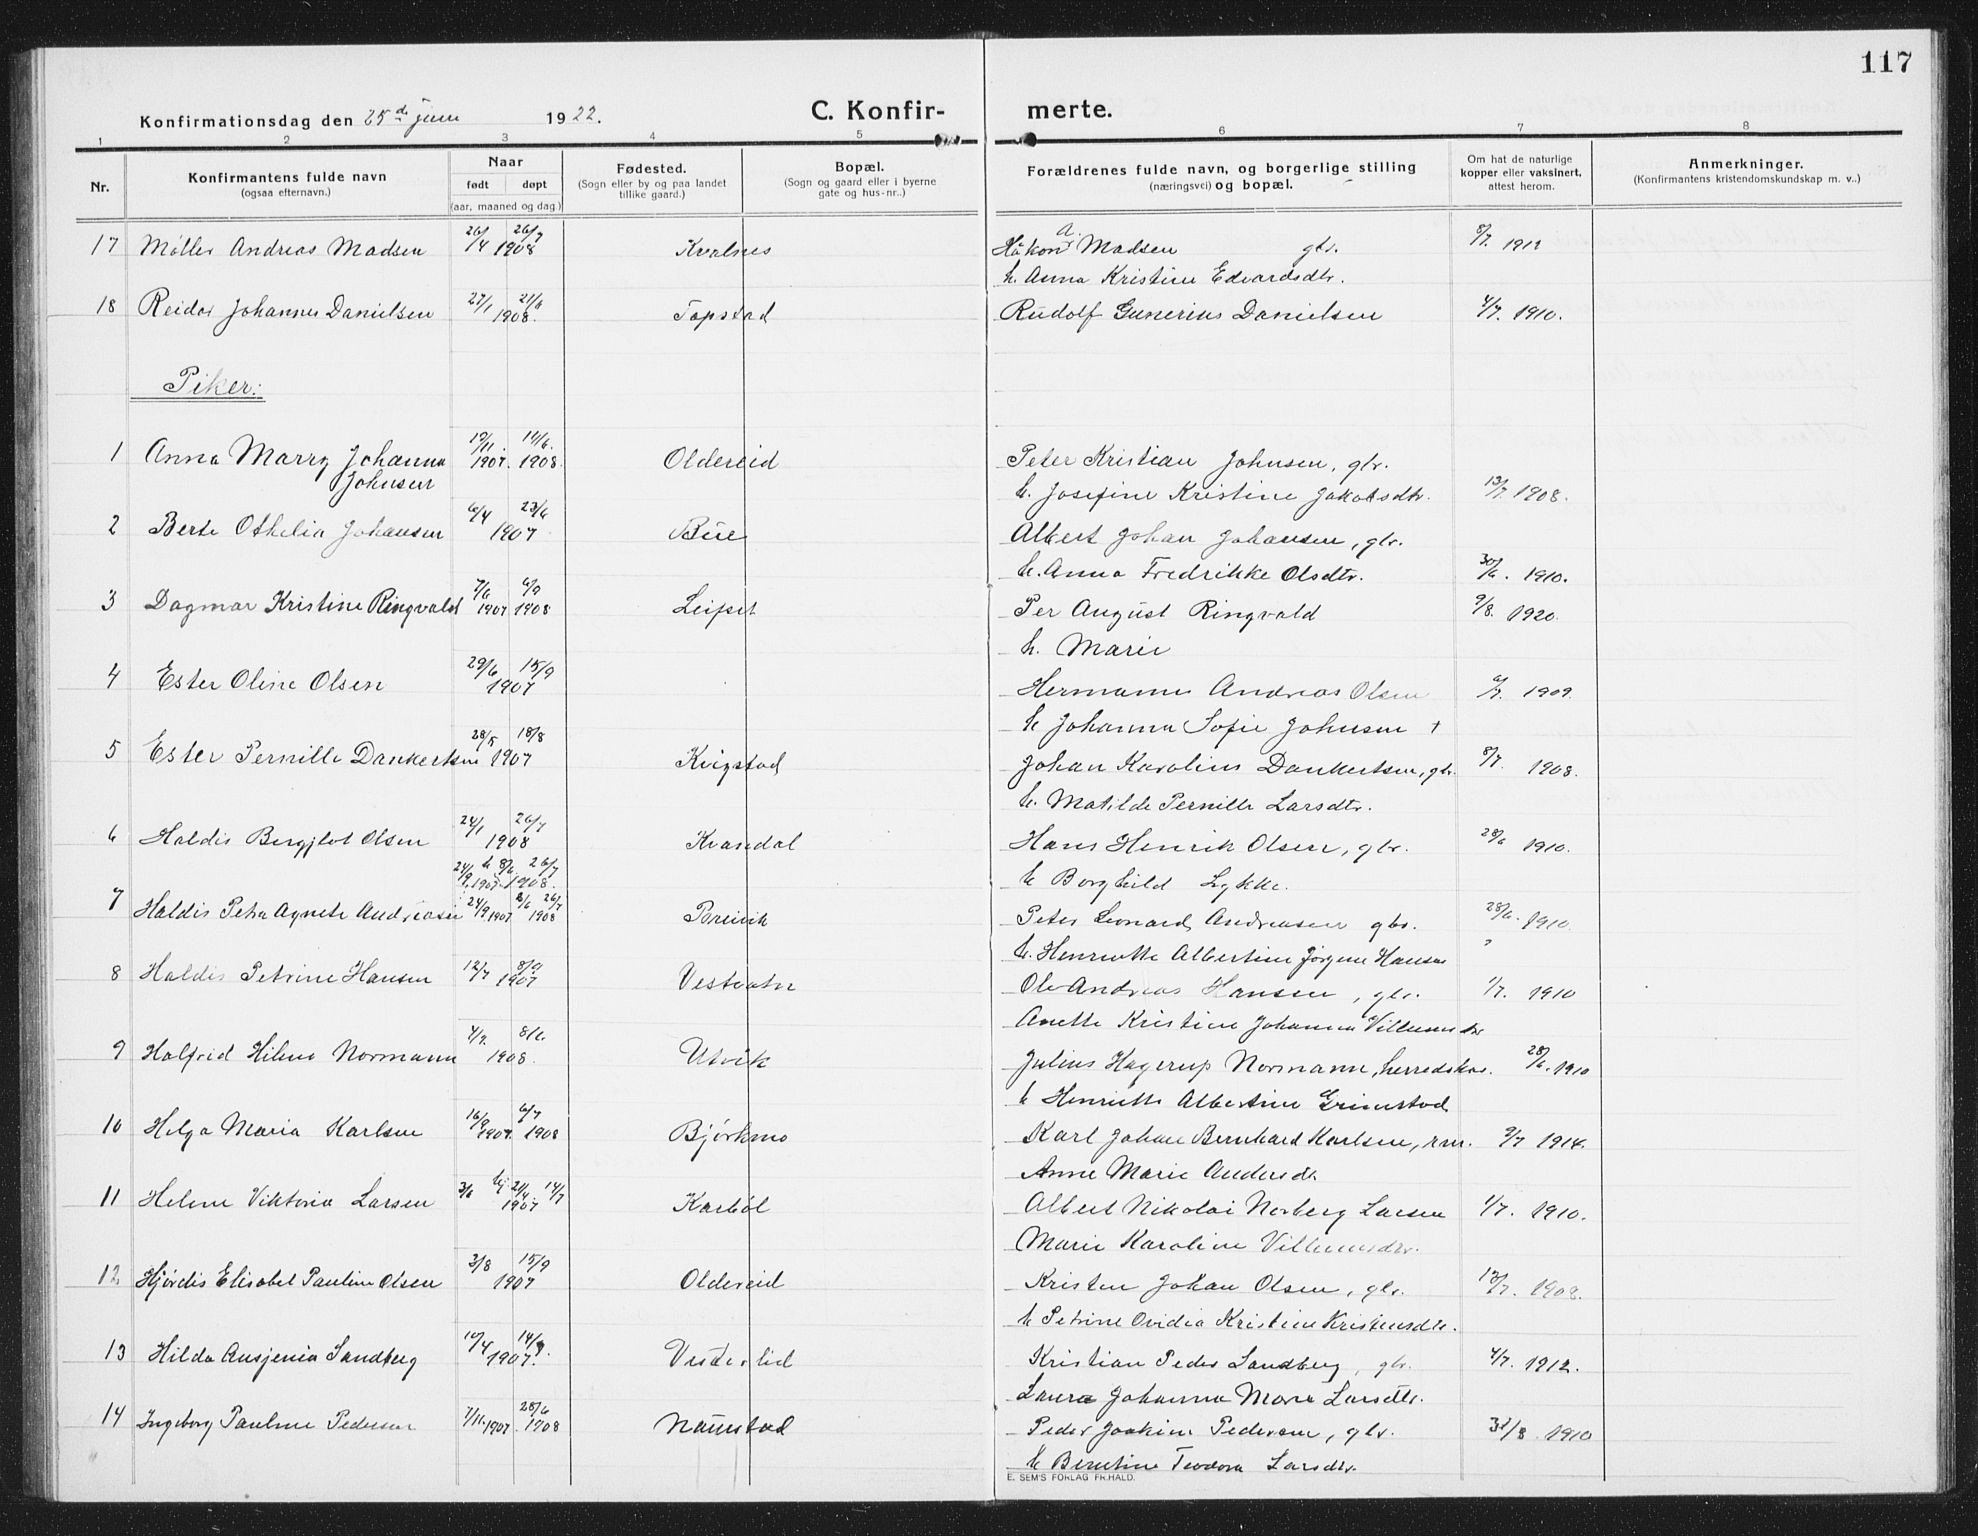 117
Konfirmationsdag den 25de juni 1922. C. Konfir- merte.
1 2 3 4 5 6 7 8
Nr. Konfirmantens fulde navn (ogsaa efternavn.) Naar født døpt (aar, maaned og dag.) Fødested. (Sogn eller by og paa landet tillike gaard.) Bopæl. (Sogn og gaard eller i byerne gate og hus-nr..) Forældrenes fulde navn, og borgerlige stilling (næringsvei) og bopæl. Om hat de naturlige kopper eller vaksinert, attest herom. Anmerkninger. (Konfirmantens kristendomskundskap m. v..)
17 Møller Andreas Madsen 26/4 26/7 1908 Kvalnes Håkon A. Madsen gbr. 8/7 1912
h. Anna Kristine Edvardsdtr.
18 Reidar Johannes Danielsen 27/1 21/6 1908. Topstad Rudolf Gunerius Danielsen 4/7. 1910.
Piker:
1 Anna Marry Johanna Johnsen 19/11. 1907. 14/6. 1908. Oldereid Peter Kristian Johnsen, gbr.
h. Josefine Kristine Jakobsdtr. 13/7 1908.
2 Berte Othelia Johansen 6/4 23/6 1907 Bue Albert Johan Johansen, gbr.
h. Anna Fredrikke Olsdtr. 30/6. 1910.
3 Dagmar Kristine Ringvald 7/6 1907 6/9 1908 Leipet Per August Ringvald 9/8. 1920.
h. Marie
4 Ester Oline Olsen 29/6 15/9 1907 Hermann Andreas Olsen 1909.
h Johanna Sofie Johnsen +
5 Ester Pernille Dankertsen 28/5 18/8 1907 Kvigstad Johan Karolius Dankertsen, gbr. 8/7 1908.
h. Matilde Pernille Larsdtr.
6 Haldis Bergjlot Olsen 24/1 26/7 1908 Kvanndal Hans Henrik Olsen, gbr. 28/6 1910.
24/9 1907 h 8/6 26/7 1908. h Borghild Lykke.
7 Haldis Petra Agnete Andreasen 24/9 1907. 8/6 26/7 1908 Poreivik Peter Leonard Andreasen gbr. 28/6. 1910.
h. Henriette Albertine Jørgine Hansen ?
8 Haldis Petrine Hansen 12/7 8/9 1907 Vestvatn Ole Andreas Hansen, gbr. 1/7. 1910
Anette Kristine Johanna Villumsdtr
9 Halfrid Hilma Normann 4/2. 8/6. 1908. Utvik Julius Hagerup Normann, herredskas. 28/6. 1910
h Henriette Albertine Grimstad
10 Helga Maria Karlsen 16/9 1907. 6/7 1908 Bjørkmo Karl Johan Bernhard Karlsen, rm. 9/7 1914.
Anne Marie Andersdt.
11 Helene Viktoria Larsen 3/6 hj 21/4. 14/7 1907 Karbøl Albert Nikolai Norberg Larsen 1/7. 1910.
Marie Karoline Villumsdtr.
12 Hjørdis Elisabet Pauline Olsen 3/8 15/9 1907 Oldereid Kristen Johan Olsen, gbr. 13/7. 1908.
h Petrine Ovidia Kristine Kristensdtr.
13 Hilda Ansjenia Sandberg 10/4 14/7. 1907. Vesterlid Kristian Peder Sandberg, gbr. 4/7. 1912.
Laura Johanna Maria Larsdtr.
14 Ingeborg Pauline Pedersen 7/11. 1907. 28/6 1908 Naurstad Peder Joakim Pedersen, gbr. 31/8. 1910
h Berntine Teodora Larsdtr.
E. SEM'S FORLAG FR.HALD.